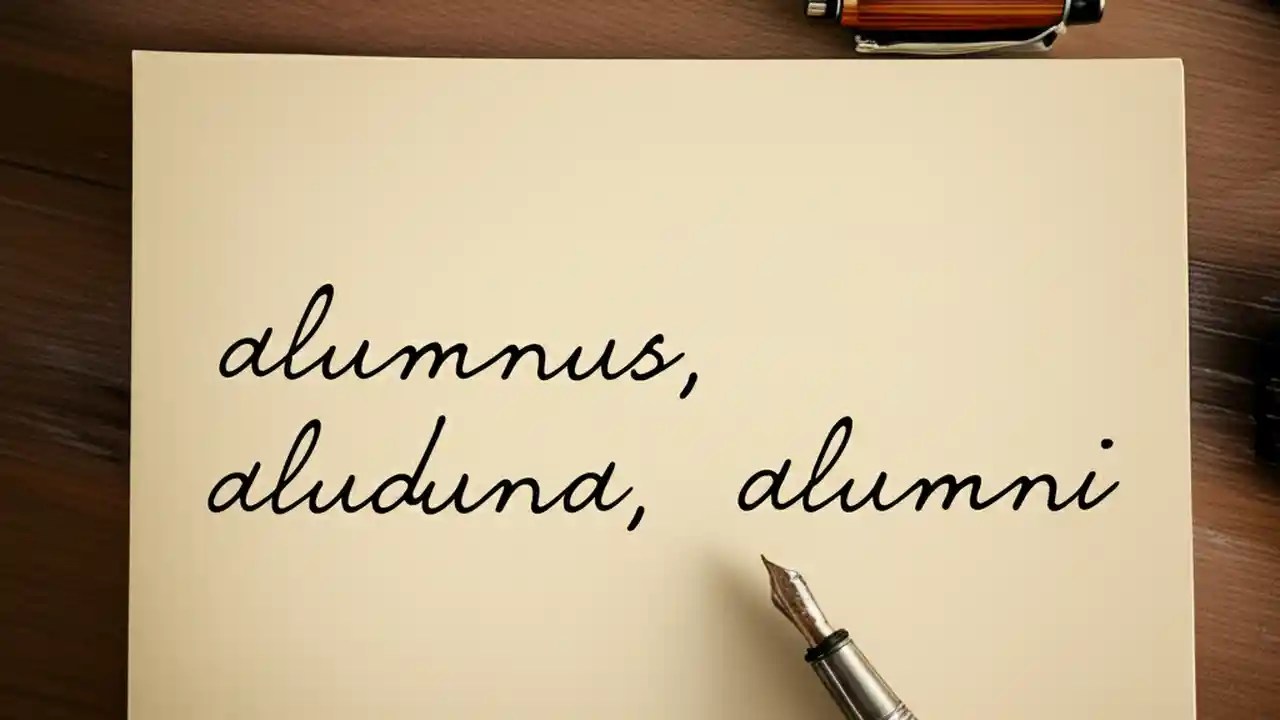 alumnus,
aluduna, alumni